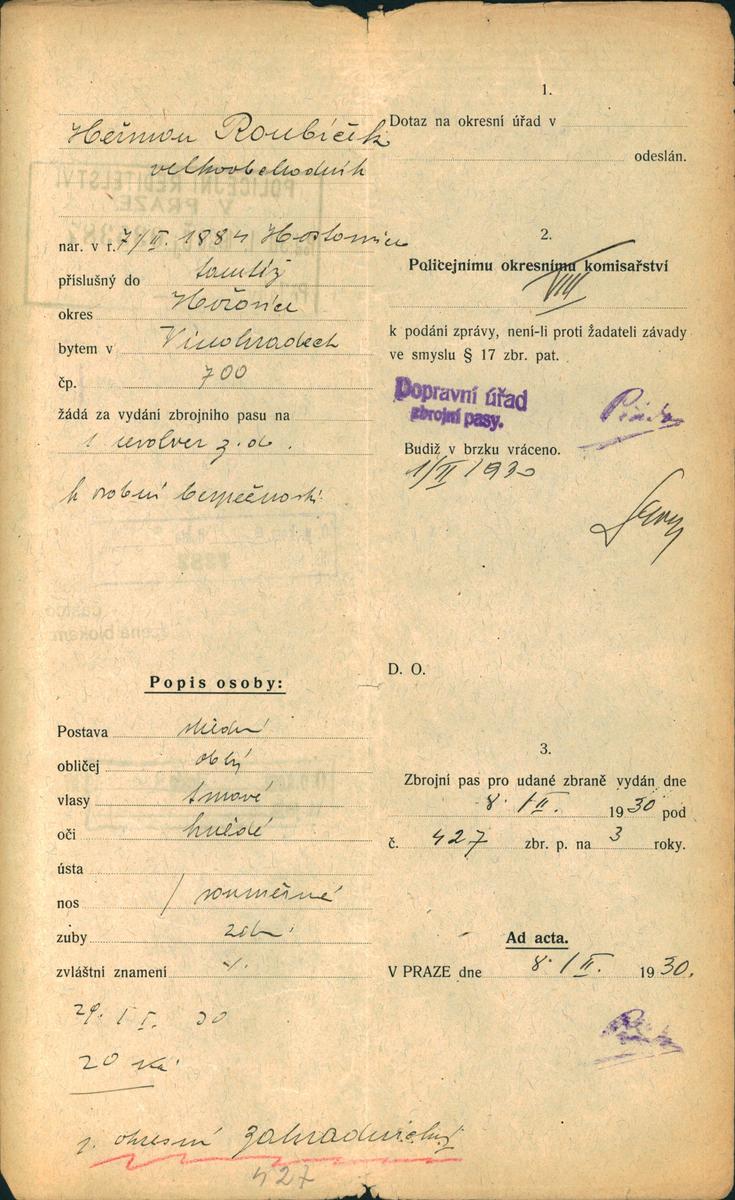 Heřman Roubíček
velkoobchodník
nar. v r. 7/II. 1884 Hostomice
příslušný do tamtéž
okres Hořovice
bytem v Vinohradech
čp. 700
žádá za vydání zbrojního pasu na
1 revolver
k osobní bezpečnosti
Popis osoby:
Postava střední
obličej oblý
vlasy tmavé
oči hnědé
ústa
nos souměrné
zuby
zvláštní znamení
29. I. 30
20 Kč
okresní zahradnický
427
1.
Dotaz na okresní úřad v
odeslán.
2.
Policejnímu okresnímu komisařství
VIII
k podání zprávy, není-li proti žadateli závady
ve smyslu § 17 zbr. pat.
Dopravní úřad
zbrojní pasy.
Budiž v brzku vráceno.
1/II 1930
D. O.
3.
Zbrojní pas pro udané zbraně vydán dne
8. II. 1930 pod
č. 427 zbr. p. na 3 roky.
Ad acta.
V PRAZE dne 8. II. 1930.